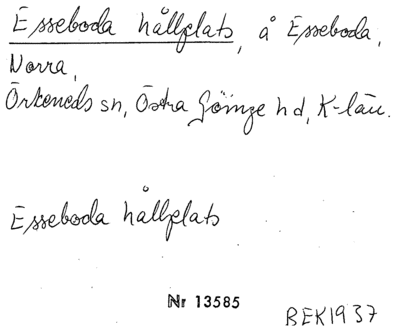 Esseboda hållplats, å Esseboda,
Norra,
Örkeneds sn, Östra Göinge hd, K-län.
Esseboda hållplats
Nr 13585
BEK1937